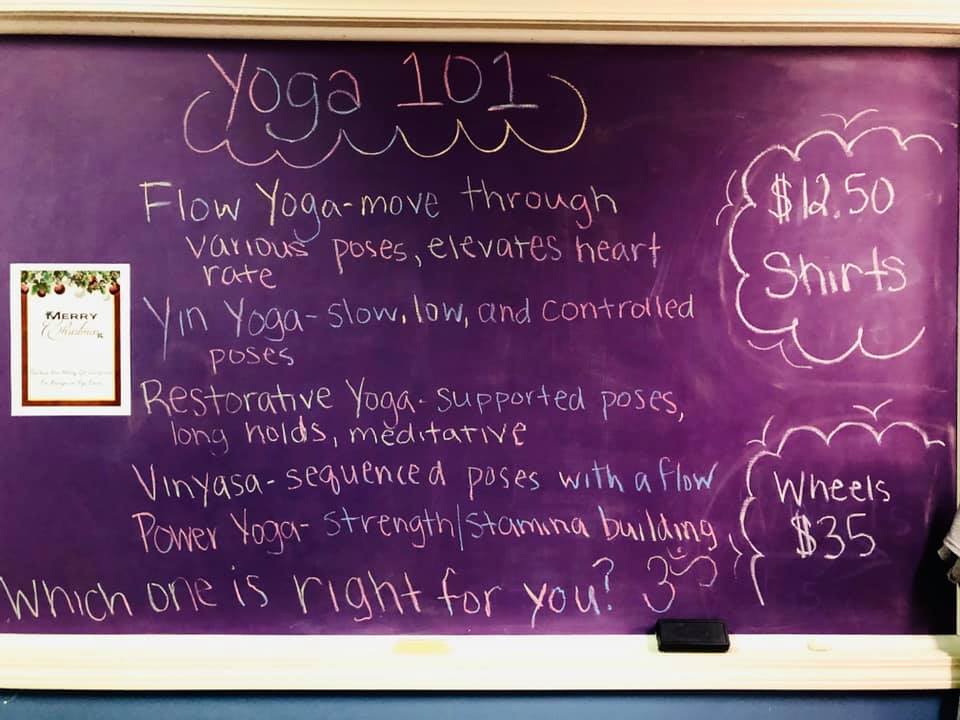 Yoga 101
Flow Yoga-move through
various poses, elevates heart
rate
Yin Yoga-slow, low, and controlled
poses
Restorative Yoga-supported poses,
long holds, meditative
Vinyasa-sequenced poses with a flow
Power Yoga-strength/stamina building
Which one is right for you? ૐ
$12.50
Shirts
Wheels
$35
MERRY
Christmas